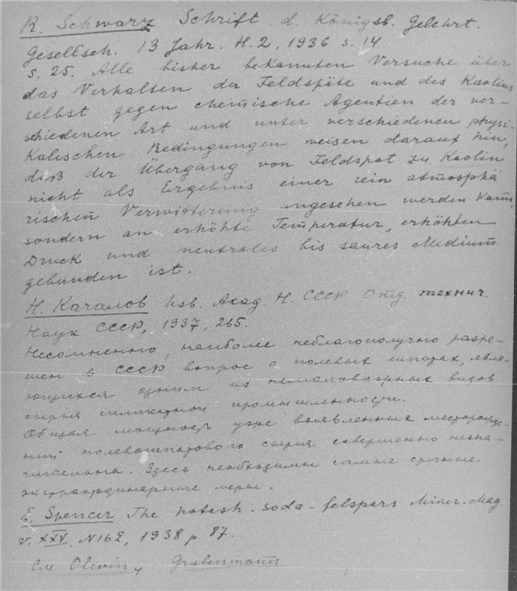 R. Schwarz Schrift. d. Königsb. Gelehrt.
Gesellsch. 13 Jahr. H. 2, 1936 s. 14
s. 25. Alle bisher bekannten Versuche über
das Verhalten der Feldspäte und des Kaolins
selbst gegen chemische Agentien der ver-
schiedenen Art und unter verschiedenen physi-
kalischen Bedingungen weisen darauf hin,
daß der Übergang von Feldspat zu Kaolin
nicht als Ergebnis einer rein atmosphä
rischen Verwitterung angesehen werden kann,
sondern an erhöhte Temperatur, erhöhten
Druck und neutrales bis saures Medium
gebunden ist.
Н. Качалов Изв. Акад. Н. СССР Отд. технич.
Наук СССР, 1937, 265.
Несомненно, наиболее неблагополучно разре-
шен в СССР вопрос о полевых шпатах, явля-
ющихся одним из немаловажных видов
сырья промышленности.
Общая мощность уже выявленных месторожде-
ний полевошпатового сырья совершенно незна-
чительна. Здесь необходимы самые срочные
экстраординарные меры.
E. Spencer The potash-soda-felspars Miner. Mag
v. XXV, N162, 1938 p. 87.
См. Olivin,